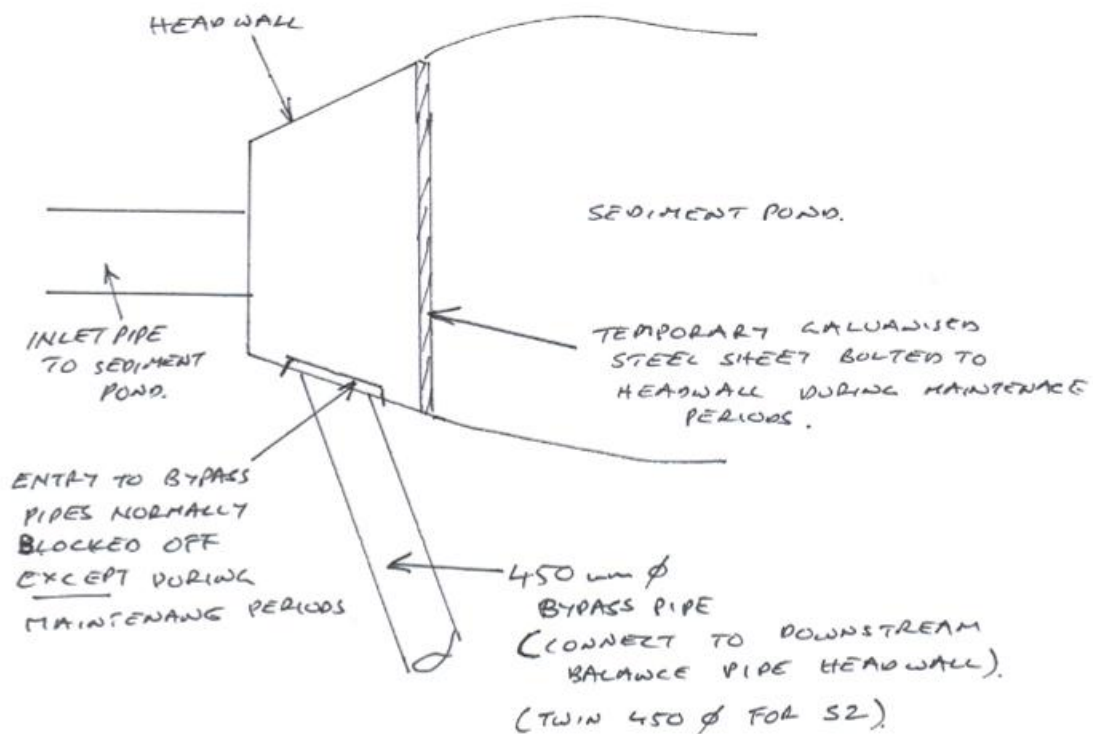 HEADWALL
SEDIMENT POND.
INLET PIPE
TO SEDIMENT
POND.
TEMPORARY GALVANISED
STEEL SHEET BOLTED TO
HEADWALL DURING MAINTENACE
PERIODS.
ENTRY TO BYPASS
PIPES NORMALLY
BLOCKED OFF
EXCEPT DURING
MAINTENANC PERIODS
450 mm Ø
BYPASS PIPE
(CONNECT TO DOWNSTREAM
BALANCE PIPE HEADWALL).
(TWIN 450 Ø FOR S2).